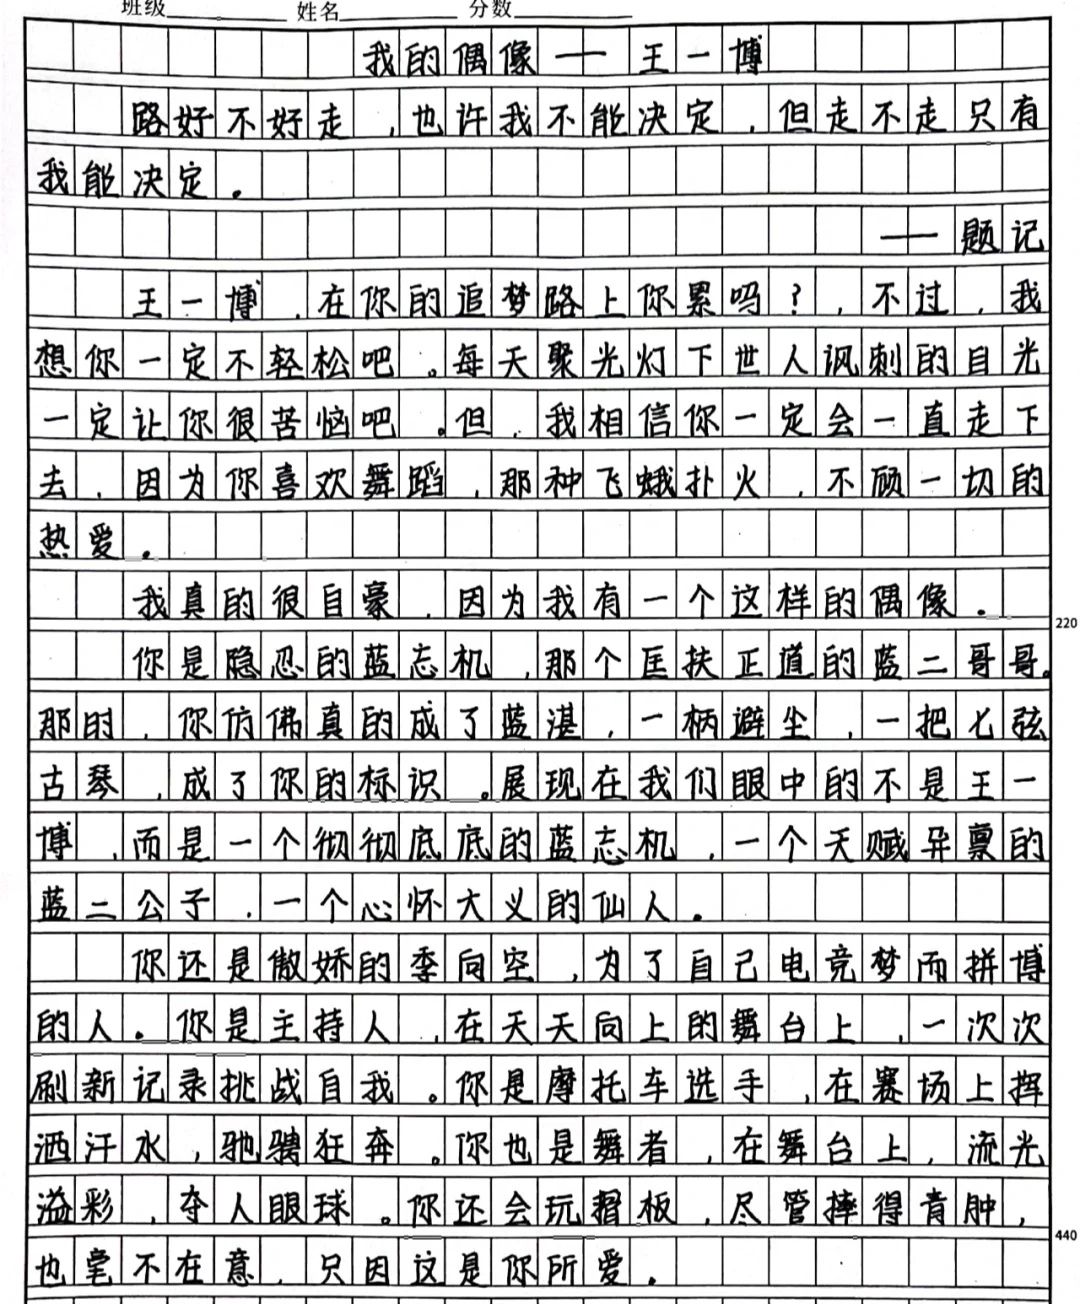 班级 姓名 分数
我的偶像——王一博
路好不好走,也许我不能决定,但走不走只有
我能决定。
——题记
王一博,在你的追梦路上你累吗?,不过,我
想你一定不轻松吧。每天聚光灯下世人讽刺的目光
一定让你很苦恼吧。但,我相信你一定会一直走下
去,因为你喜欢舞蹈,那种飞蛾扑火,不顾一切的
热爱。
我真的很自豪,因为我有一个这样的偶像。
220
你是隐忍的蓝忘机,那个匡扶正道的蓝二哥哥。
那时,你仿佛真的成了蓝湛,一柄避尘,一把七弦
古琴,成了你的标识。展现在我们眼中的不是王一
博,而是一个彻彻底底的蓝忘机,一个天赋异禀的
蓝二公子,一个心怀大义的仙人。
你还是傲娇的季向空,为了自己电竞梦而拼博
的人。你是主持人,在天天向上的舞台上,一次次
刷新记录挑战自我。你是摩托车选手,在赛场上挥
洒汗水,驰骋狂奔。你也是舞者,在舞台上,流光
溢彩,夺人眼球。你还会玩滑板,尽管摔得青肿,
440
也毫不在意,只因这是你所爱。